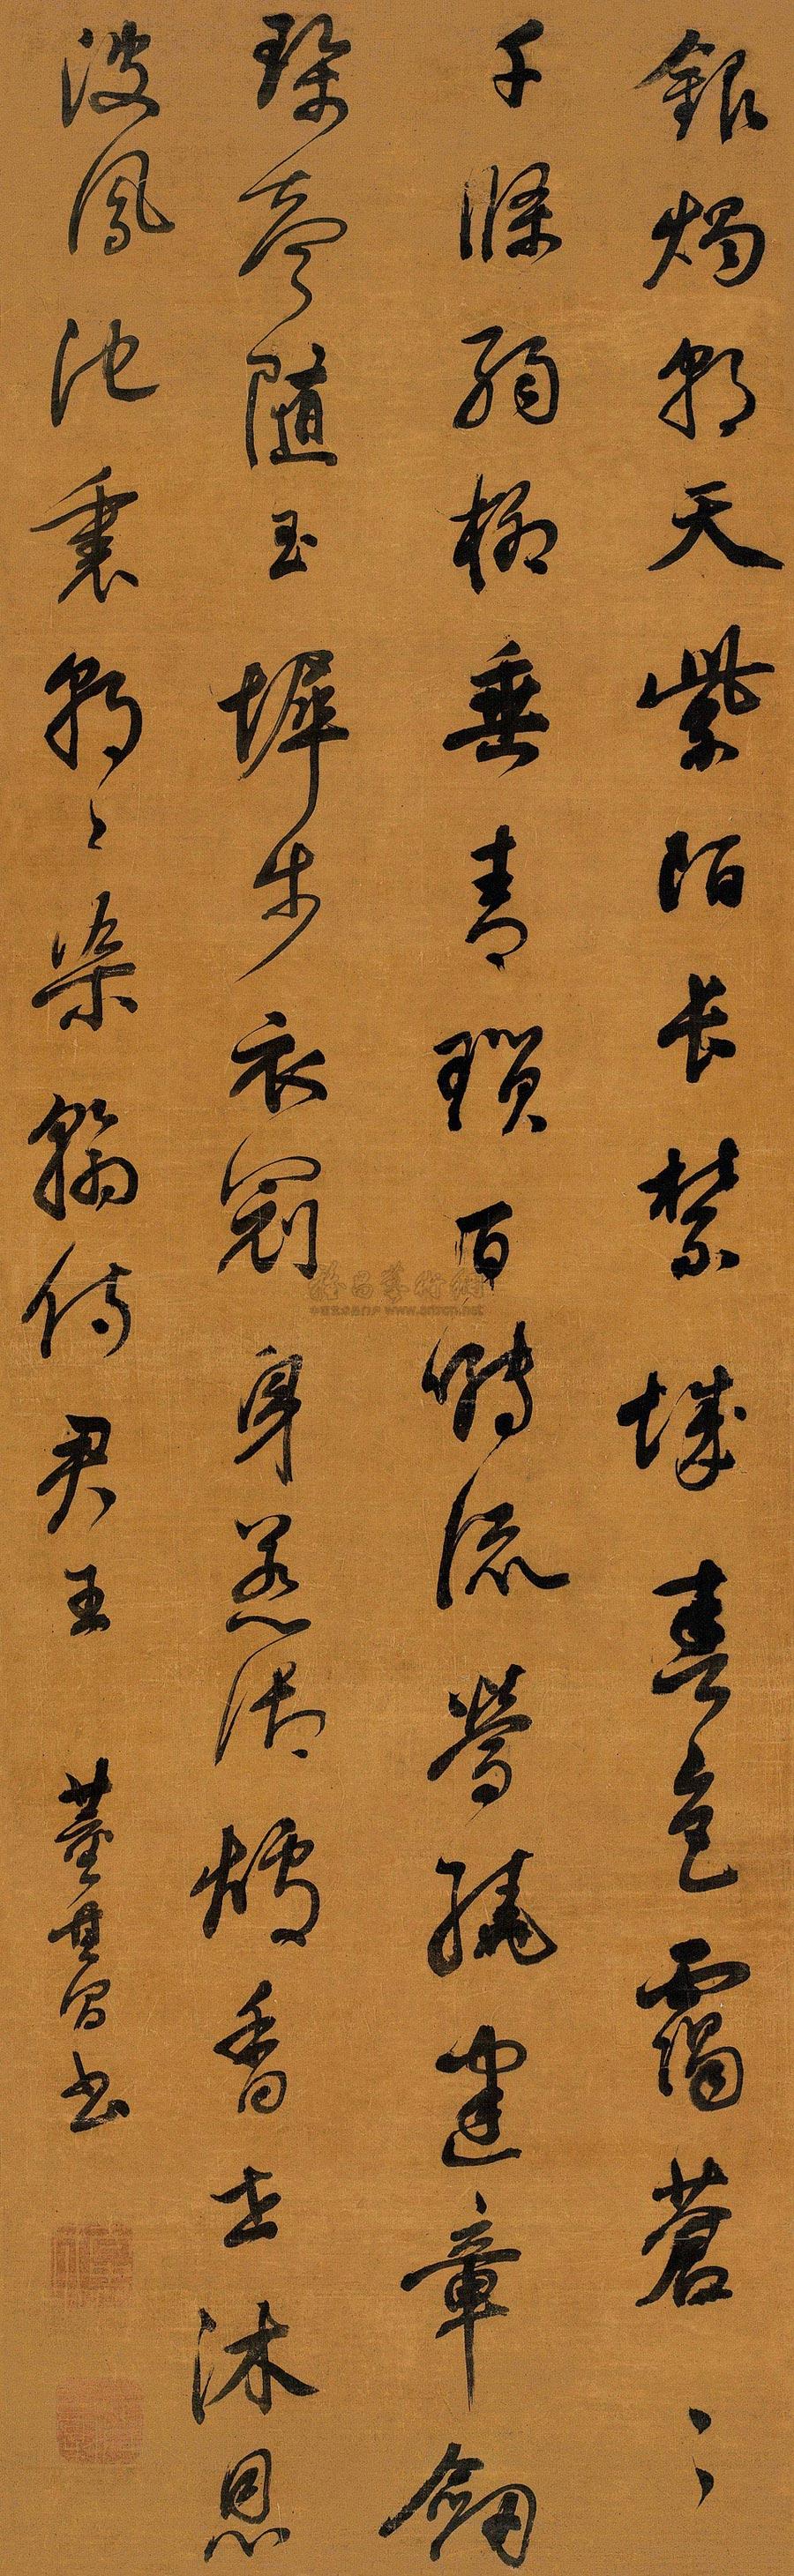 銀燭朝天紫陌長禁城春色靄蒼〻
千條弱柳垂青瑣百囀流鶯繞建章劍
珮聲隨玉墀步衣冠身惹御爐香共沐恩
波鳳池裏朝〻染翰侍君王 董其昌書
雅昌藝術網
www.artron.net